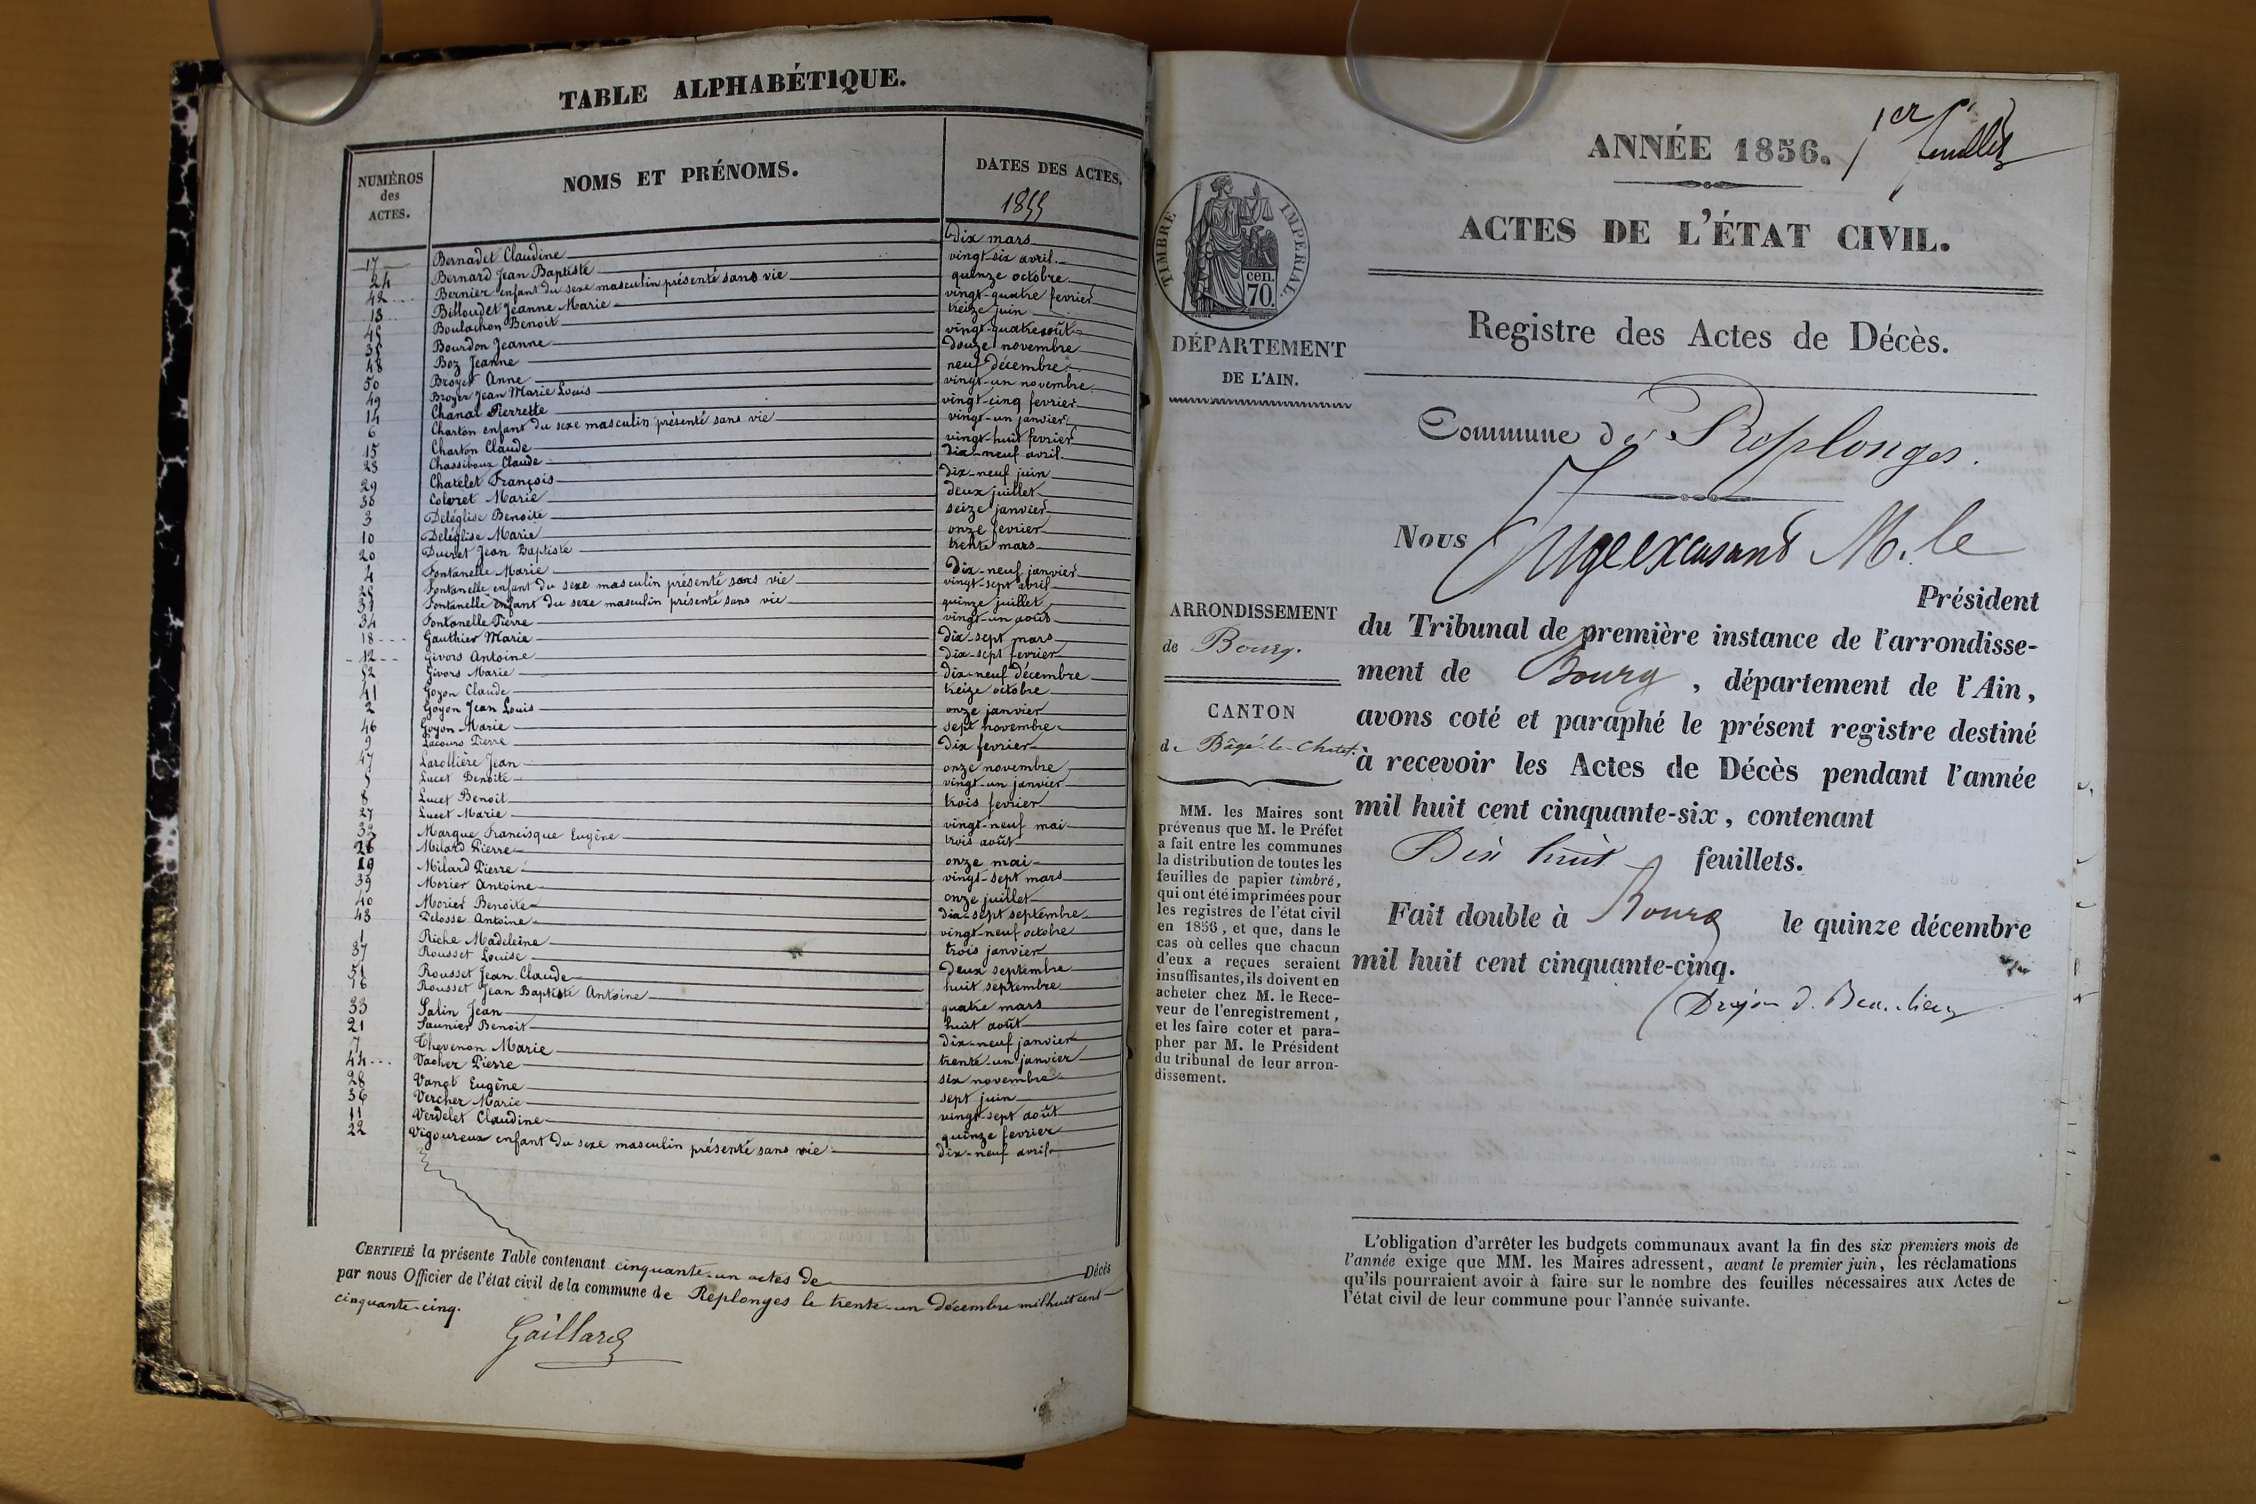 TABLE ALPHABÉTIQUE.
NUMÉROS des ACTES.
NOMS ET PRÉNOMS.
DATES DES ACTES.
1855
17 Bernadet Claudine dix mars
24 Bernard Jean Baptiste vingt-six avril
42 Bernier enfant du sexe masculin présenté sans vie quinze octobre
13 Billoudet Jeanne Marie vingt-quatre fevrier
45 Boulachon Benoit treize juin
35 Bourdon Jeanne vingt-quatre août
48 Boz Jeanne douze novembre
50 Broyer Anne neuf décembre
49 Broyer Jean Marie Louis vingt-un novembre
14 Chanal Pierrette vingt-cinq fevrier
6 Charton enfant du sexe masculin présenté sans vie vingt-un janvier
15 Charton Claude vingt-huit fevrier
23 Chassiboux Claude dix-neuf avril
29 Chatelet François dix-neuf juin
30 Coloret Marie deux juillet
3 Deléglise Benoite seize janvier
10 Deléglise Marie onze fevrier
20 Ducret Jean Baptiste trente mars
4 Fontanelle Marie dix-neuf janvier
25 Fontanelle enfant du sexe masculin présenté sans vie vingt-sept avril
31 Fontanelle enfant du sexe masculin présenté sans vie quinze juillet
34 Fontanelle Pierre vingt-un août
18 Gauthier Marie dix-sept mars
12 Givors Antoine dix-sept fevrier
52 Givors Marie dix-neuf décembre
41 Goyon Claude treize octobre
2 Goyon Jean Louis onze janvier
46 Goyon Marie sept novembre
9 Lacours Pierre dix fevrier
47 Larollière Jean onze novembre
5 Lucet Benoite vingt-un janvier
8 Lucet Benoit trois fevrier
27 Lucet Marie vingt-neuf mai
32 Marque Francisque Eugène trois août
26 Milard Pierre onze mai
19 Milard Pierre vingt-sept mars
39 Morier Antoine onze juillet
40 Morier Benoite dix-sept septembre
43 Pelosse Antoine vingt-neuf octobre
1 Riche Madeleine trois janvier
37 Rousset Louise deux septembre
51 Rousset Jean Claude huit septembre
16 Rousset Jean Baptiste Antoine quatre mars
33 Salin Jean huit août
21 Saunier Benoit dix-neuf janvier
7 Thevenon Marie trente-un janvier
44 Vacher Pierre six novembre
28 Vanet Eugène sept juin
36 Vercher Marie vingt-sept août
11 Verdelet Claudine quinze fevrier
22 Vigoureux enfant du sexe masculin présenté sans vie dix-neuf avril
CERTIFIÉ la présente Table contenant cinquante-un actes de Décès
par nous Officier de l'état civil de la commune de Replonges le trente-un Décembre mil huit cent
cinquante-cinq.
Gaillard
1er feuillet
ANNÉE 1856.
ACTES DE L'ÉTAT CIVIL.
TIMBRE IMPÉRIAL.
cen.
70.
Registre des Actes de Décès.
DÉPARTEMENT
DE L'AIN.
Commune de Replonges.
Nous Juge excusant M. le
Président
ARRONDISSEMENT
de Bourg.
du Tribunal de première instance de l'arrondisse-
ment de Bourg, département de l'Ain,
CANTON
de Bâgé-le-Chatel.
avons coté et paraphé le présent registre destiné
à recevoir les Actes de Décès pendant l'année
mil huit cent cinquante-six, contenant
Dix huit feuillets.
Fait double à Bourg le quinze décembre
mil huit cent cinquante-cinq.
MM. les Maires sont
prévenus que M. le Préfet
a fait entre les communes
la distribution de toutes les
feuilles de papier timbré,
qui ont été imprimées pour
les registres de l'état civil
en 1856, et que, dans le
cas où celles que chacun
d'eux a reçues seraient
insuffisantes, ils doivent en
acheter chez M. le Rece-
veur de l'enregistrement,
et les faire coter et para-
pher par M. le Président
du tribunal de leur arron-
dissement.
L'obligation d'arrêter les budgets communaux avant la fin des six premiers mois de
l'année exige que MM. les Maires adressent, avant le premier juin, les réclamations
qu'ils pourraient avoir à faire sur le nombre des feuilles nécessaires aux Actes de
l'état civil de leur commune pour l'année suivante.